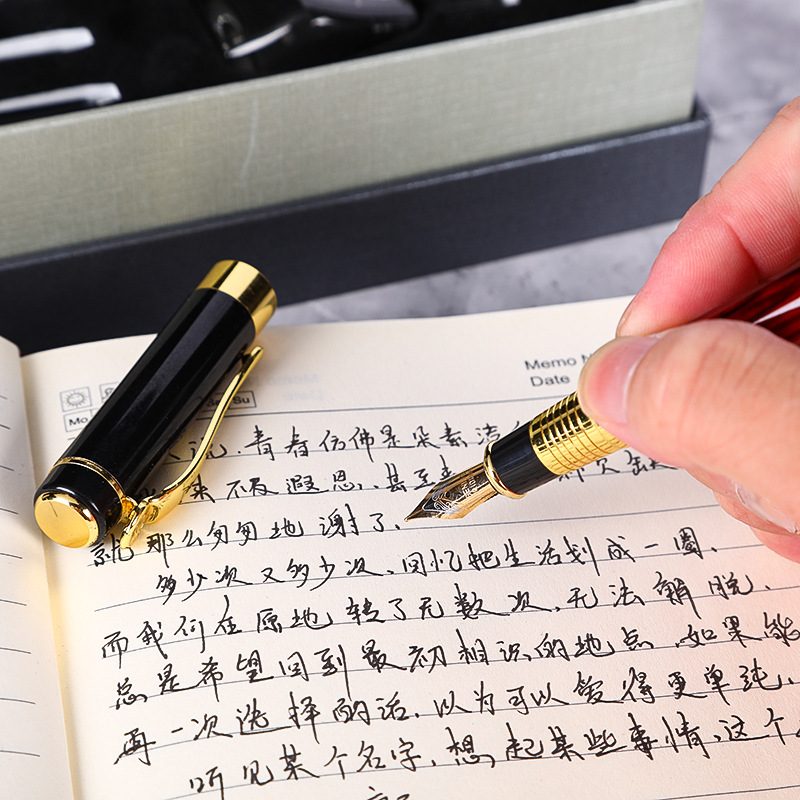 Memo N
Date
Mo Su
说,青春仿佛是朵素洁
来不及遐思,甚至
就那么匆匆地谢了.
多少次又多少次,回忆把生活划成一圈,
而我们在原地转了无数次,无法解脱.
总是希望回到最初相识的地点,如果能
再一次选择的话,以为可以爱得更单纯.
听见某个名字,想起某些事情,这个